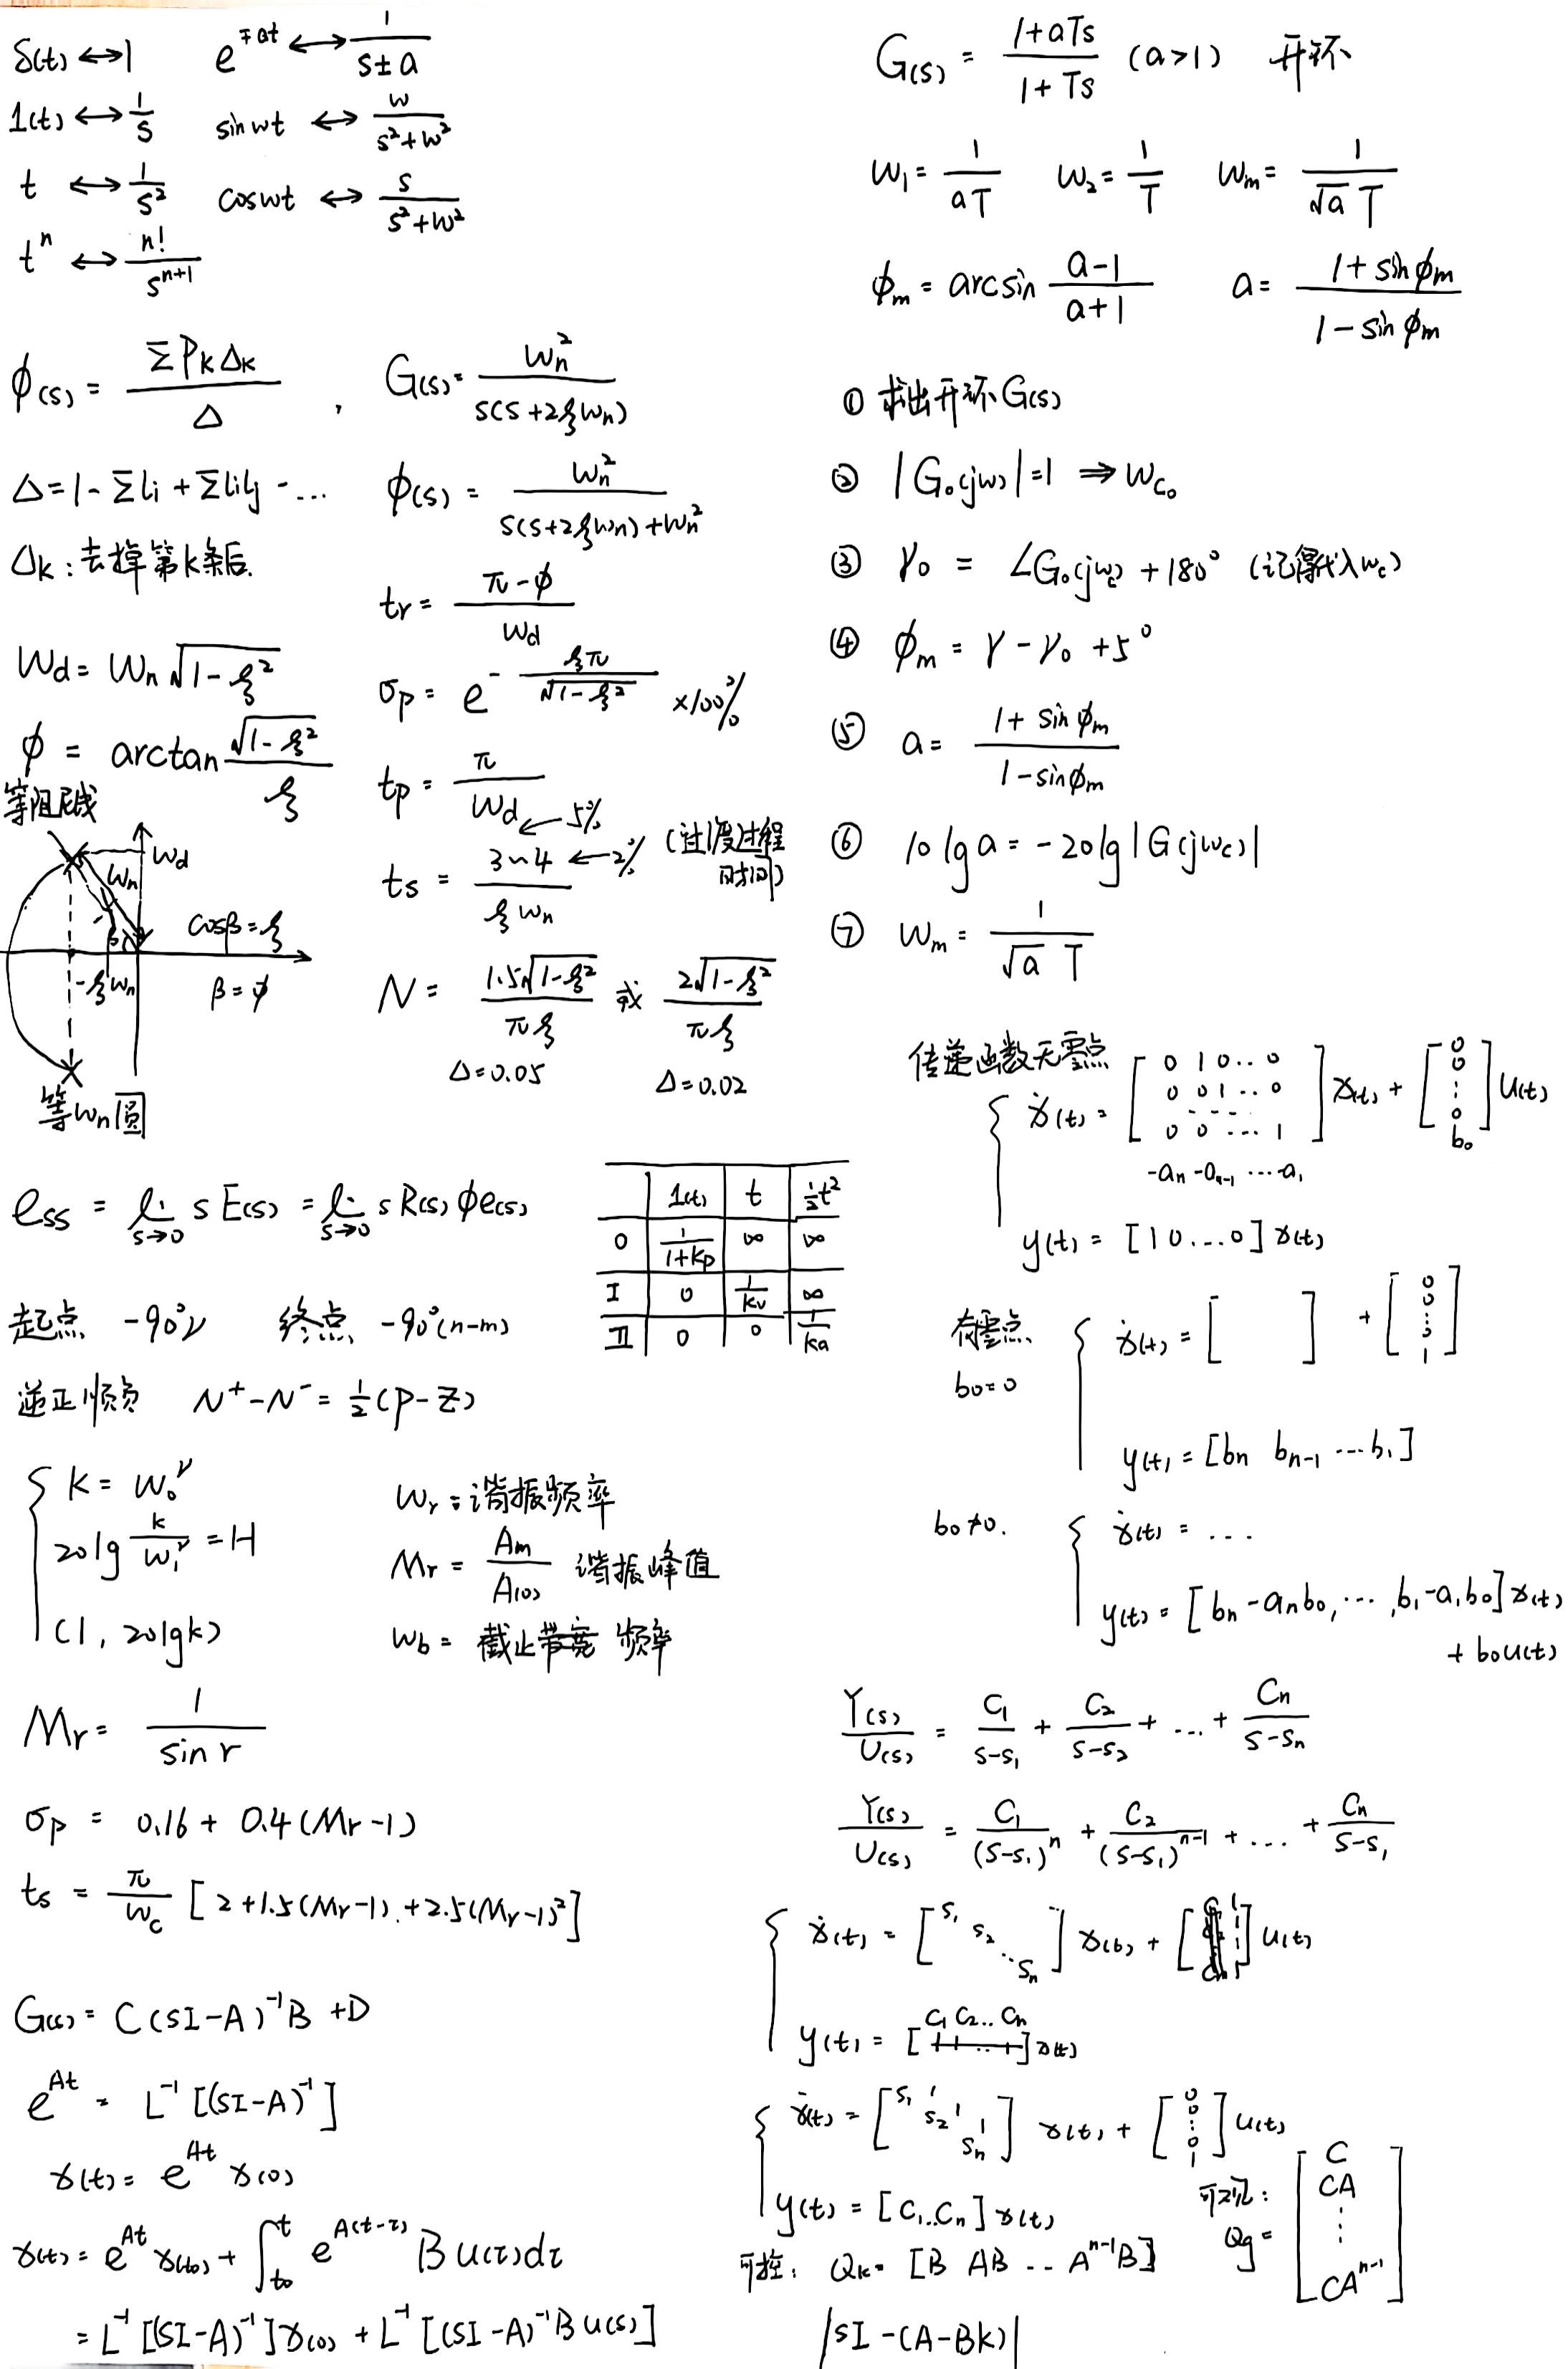 δ(t) ↔ 1    e^{∓at} ↔ 1/(s±a)
1(t) ↔ 1/s    sinwt ↔ w/(s²+w²)
t ↔ 1/s²    coswt ↔ s/(s²+w²)
t^n ↔ n!/s^{n+1}
ϕ(s) = ΣPkΔk/Δ ,
Δ=1-ΣLi+ΣLiLj-...
Δk:去掉第k条后.
Wd = Wn√(1-ξ²)
ϕ = arctan √(1-ξ²)/ξ
等阻尼线
Wd
Wn
β
cosβ=ξ
-ξWn
β=ϕ
等Wn圆
G(s) = Wn²/(s(s+2ξWn))
ϕ(s) = Wn²/(s(s+2ξWn)+Wn²)
tr = (π-ϕ)/Wd
σp = e^{-ξπ/√(1-ξ²)} ×100%
tp = π/Wd
ts = 3~4/(ξWn) ←5% ←2% (过渡过程时间)
N = 1.5√(1-ξ²)/(πξ) 或 2√(1-ξ²)/(πξ)
Δ=0.05    Δ=0.02
ess = lim s→0 sE(s) = lim s→0 sR(s)ϕe(s)
1(t) t ½t²
0 1/(1+Kp) ∞ ∞
Ⅰ 0 1/Kv ∞
Ⅱ 0 0 1/Ka
起点 -90°ν    终点 -90°(n-m)
逆正顺负 N⁺-N⁻=½(P-Z)
K = W₀^ν
20lg K/W₁^ν = H
(1, 20lgk)
Wr:谐振频率
Mr = Am/A(0) 谐振峰值
Wb = 截止带宽 频率
Mr = 1/sin r
σp = 0.16 + 0.4(Mr-1)
ts = π/Wc [2+1.5(Mr-1)+2.5(Mr-1)²]
G(s) = C(sI-A)⁻¹B+D
e^{At} = L⁻¹[(sI-A)⁻¹]
x(t) = e^{At}x(0)
x(t) = e^{At}x(t0) + ∫_{t0}^{t} e^{A(t-τ)}Bu(τ)dτ
= L⁻¹[(sI-A)⁻¹]x(0) + L⁻¹[(sI-A)⁻¹Bu(s)]
G(s) = (1+aTs)/(1+Ts) (a>1) 开环
W₁ = 1/(aT)    W₂ = 1/T    Wm = 1/(√a T)
ϕm = arcsin (a-1)/(a+1)    a = (1+sinϕm)/(1-sinϕm)
① 求出开环G(s)
② |G₀(jw)|=1 ⇒ Wc₀
③ γ₀ = ∠G₀(jwc)+180° (记得代入wc)
④ ϕm = γ-γ₀+5°
⑤ a = (1+sinϕm)/(1-sinϕm)
⑥ 10lga = -20lg|G(jwc)|
⑦ Wm = 1/(√a T)
传递函数无零点
ẋ(t) = [0 1 0 .. 0
0 0 1 .. 0
0 0 ... 1
-an -an-1 ... a₁] x(t) + [0 0 ⋮ 0 b₀] u(t)
y(t) = [1 0....0] x(t)
有零点
b₀=0
ẋ(t) = [ ] + [0 0 ⋮ 0 1]
y(t) = [bn bn-1 ... b₁]
b₀≠0.
ẋ(t) = ...
y(t) = [bn-anb₀, ..., b₁-a₁b₀]x(t)
+ b₀u(t)
Y(s)/U(s) = C₁/(s-s₁) + C₂/(s-s₂) + ... + Cn/(s-sn)
Y(s)/U(s) = C₁/(s-s₁)^n + C₂/(s-s₁)^{n-1} + ... + Cn/(s-s₁)
ẋ(t) = [s₁ s₂ ⋱ sn] x(t) + [1 1 ⋮ 1] u(t)
y(t) = [C₁ C₂..Cn] x(t)
ẋ(t) = [s₁ 1 s₂ 1 1 sn] x(t) + [0 0 ⋮ 0 1] u(t)
y(t) = [C₁..Cn] x(t)
可控: Qk = [B AB .. A^{n-1}B]
可观:
Qg = [C CA ⋮ CA^{n-1}]
|sI-(A-BK)|